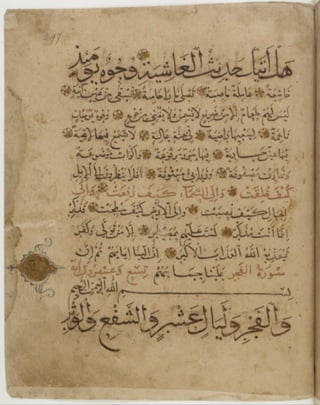 هل أتىك حديث الغاشية وجوه يومئذ
خاشعة عاملة ناصبة تصلى نارا حامية تسقى من عين آنية
ليس لهم طعام إلا من ضريع لا يسمن ولا يغني من جوع وجوه يومئذ
ناعمة لسعيها راضية في جنة عالية لا تسمع فيها لاغية
فيها عين جارية فيها سرر مرفوعة وأكواب موضوعة
ونمارق مصفوفة وزرابي مبثوثة أفلا ينظرون إلى الإبل
كيف خلقت وإلى السماء كيف رفعت وإلى
الجبال كيف نصبت وإلى الأرض كيف سطحت فذكر
إنما أنت مذكر لست عليهم بمصيطر إلا من تولى وكفر
فيعذبه الله العذاب الأكبر إن إلينا إيابهم ثم إن
علينا حسابهم سورة الفجر
بسم الله الرحمن الرحيم
والفجر وليال عشر والشفع والوتر